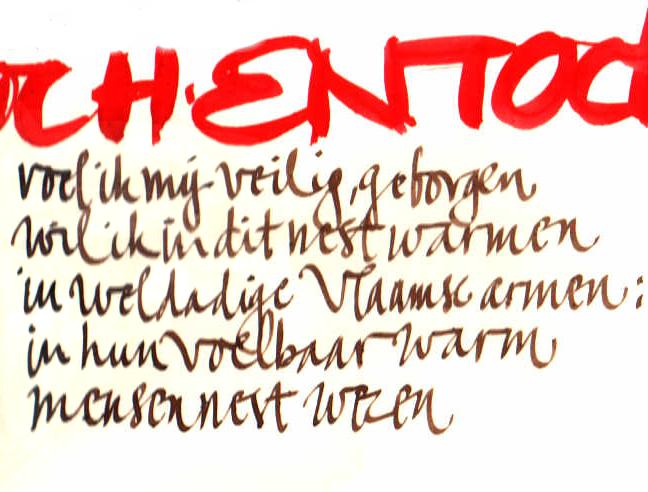 OCH·EN TOC
voel ik mij veilig, geborgen
wil ik in dit nest warmen
in weldadige Vlaamse armen:
in hun voelbaar warm
mensennest wezen